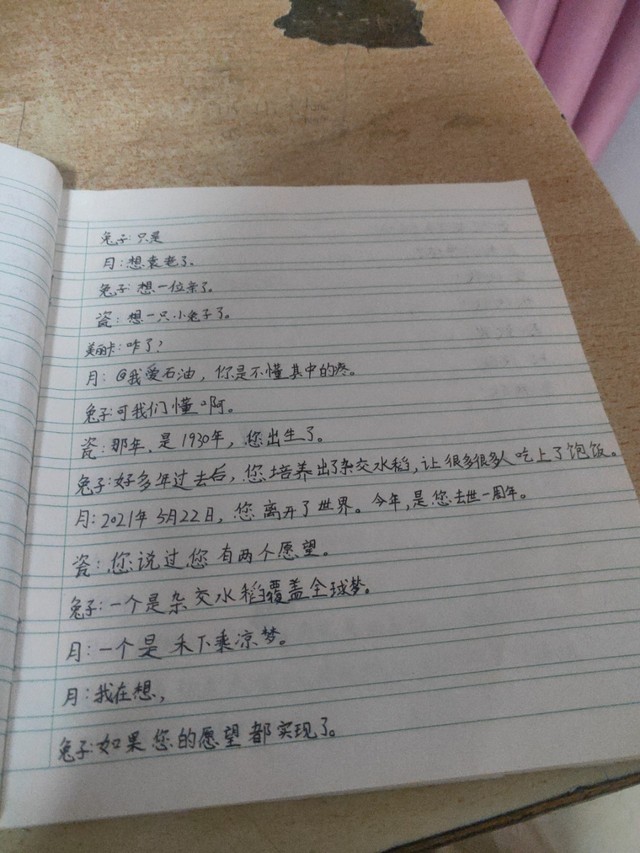 兔子:只是
月:想袁老了、
兔子:想一位亲了。
瓷:想一只小兔子了。
美丽卡:咋了?
月:@我爱石油,你是不懂其中的疼。
兔子:可我们懂啊。
瓷:那年,是1930年,您出生了。
兔子:好多年过去后,您培养出了杂交水稻,让很多很多人吃上了饱饭。
月:2021年5月22日,您离开了世界。今年,是您去世一周年。
瓷:您说过,您有两个愿望。
兔子:一个是杂交水稻覆盖全球梦。
月:一个是禾下乘凉梦。
月:我在想,
兔子:如果您的愿望都实现了。